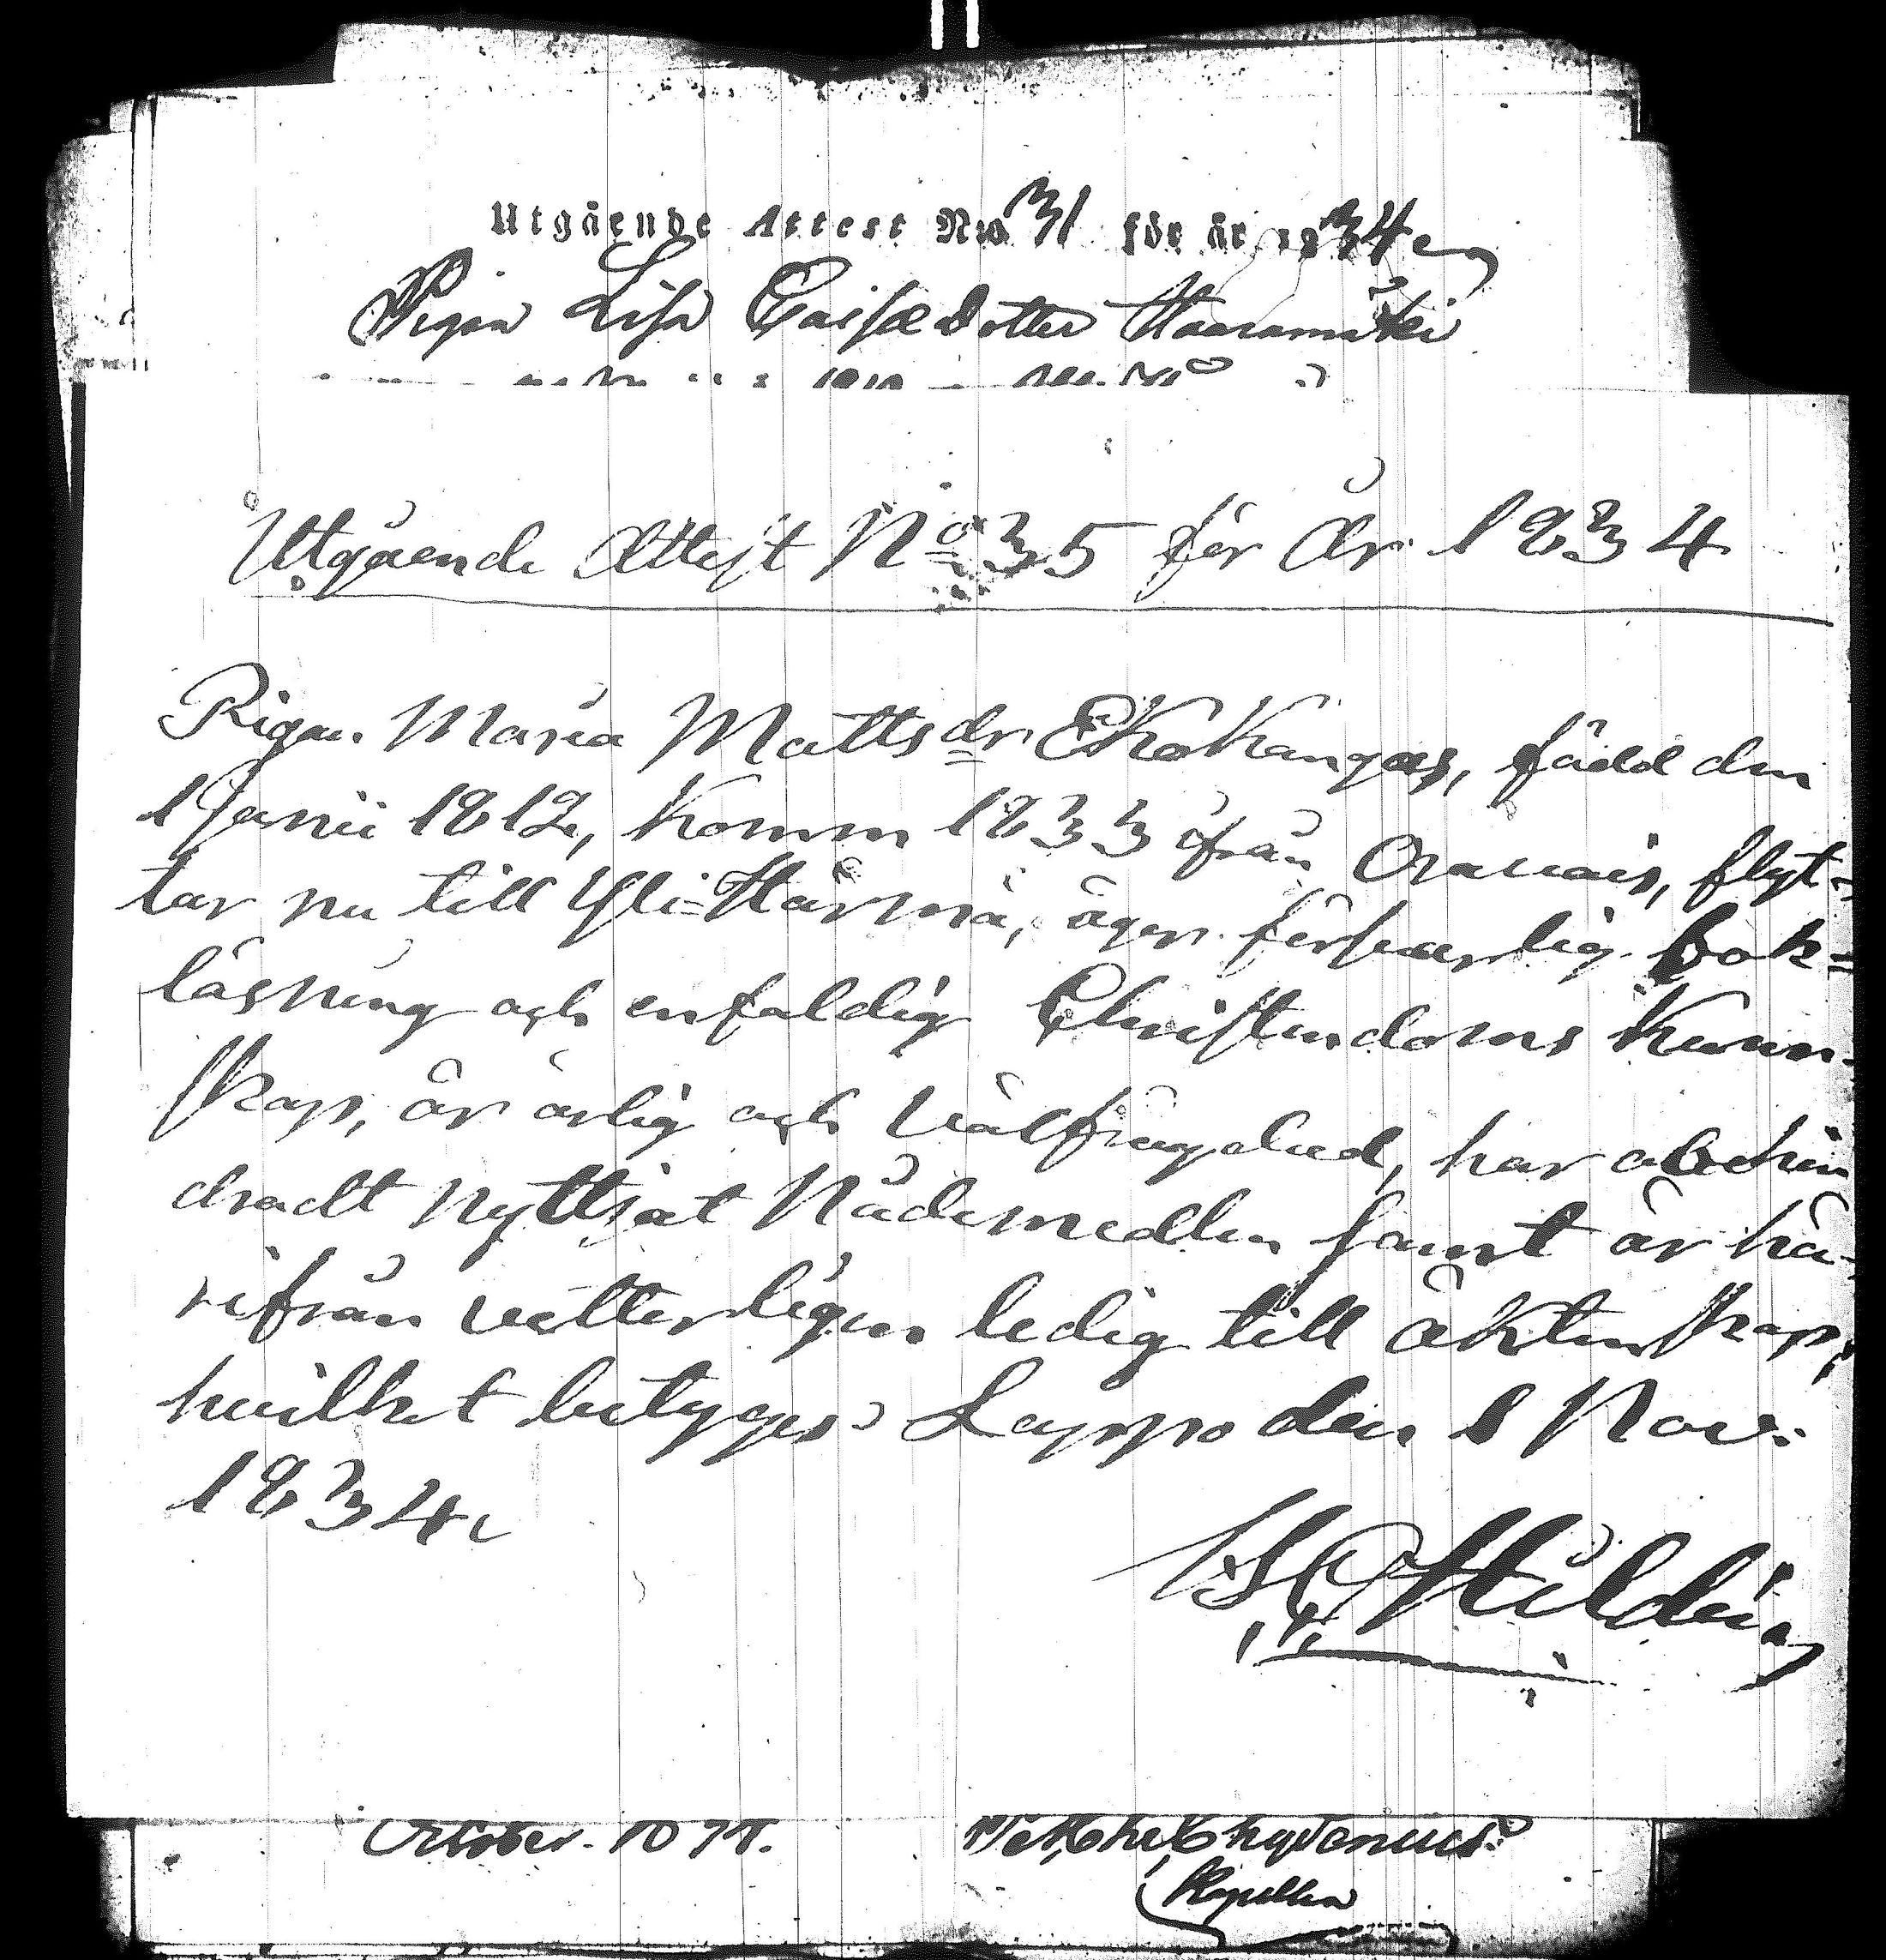 Utgående Attest N:o 31 för år 1834
Pigan Lisa Caisædotter Haaramäki
Utgående Attest No 35 för År 1834
Pigan Maria Mattsdr Ekokangas, född den
1 Junii 1812, komm 1833 ifrån Oravais, flyt-
tar nu till Yli-Härmä, äger försvarlig bok=
läsning och enfaldig Christendoms Kunn-
skap, är ärlig och välfrägdad, har obehin
dradt nyttjat Nådemedlen samt är hä-
rifrån vetterligen ledig till äktenskap,
hvilket betyges. Lappo den 1 Nov:
1834.
October 1834.
Chydenius
Kapellan